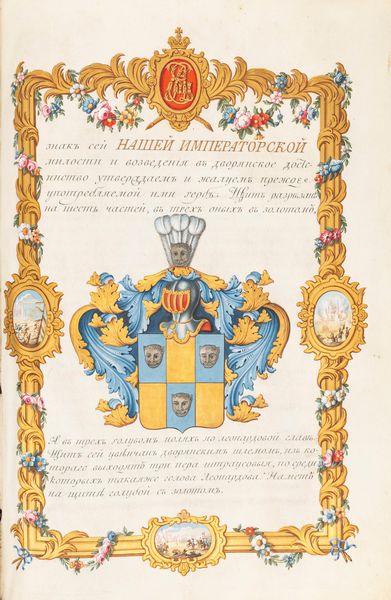 знакъ сей НАШЕЙ ИМПЕРАТОРСКОЙ
милости и возведенія въ дворянское досто-
инство утверждаемъ и жалуемъ прежде
употребляемой ими гербъ. Щитъ разрѣзанъ
на шесть частей, въ трехъ оныхъ въ золотомъ,
А въ трехъ голубомъ поляхъ по леопардовой главѣ.
Щитъ сей увѣнчанъ дворянскимъ шлемомъ, изъ ко-
тораго выходятъ три пера штраусовыя, по среди
которыхъ такаяже голова Леопардова. Наметъ
на щитѣ голубой съ золотомъ.